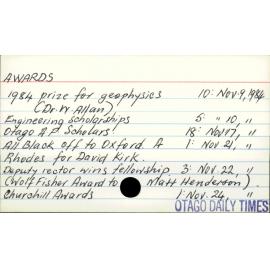 AWARDS
1984 prize for geophysics 10: Nov. 9, 1984
(Dr. W. Allan)
Engineering Scholarships 5: " 10, "
Otago A.P. Scholars 18: Nov 17, "
All Black off to Oxford. A 1: Nov 21, "
Rhodes for David Kirk.
Deputy rector wins fellowship 3: Nov. 22, "
(Woolf Fisher Award to Matt Henderson).
Churchill Awards 1: Nov. 24, "
OTAGO DAILY TIMES